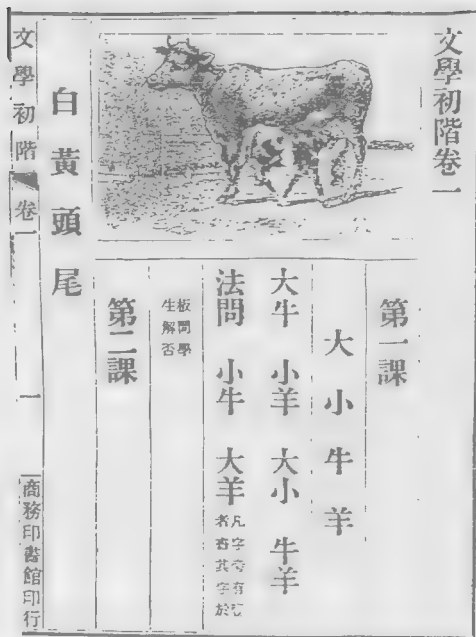 文學初階卷一
第一課
大 小 牛 羊
大牛 小羊 大小 牛羊
法問 小牛 大羊 凡字旁有
者書其字於
板問學
生解否
第二課
白 黃 頭 尾
文學初階 卷一
一
商務印書館印行